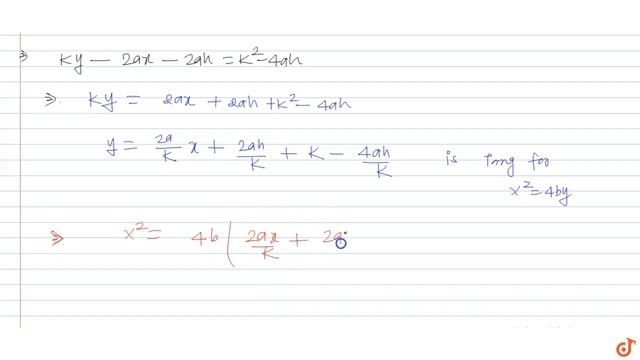 ⇒ Ky — 2ax — 2ah = K² - 4ah
⇒. Ky = 2ax + 2ah + K² - 4ah
y = 2a/K x + 2ah/K + K - 4ah/K is tng for
x² = 4by
⇒ x² = 4b ( 2ax/K + 2a